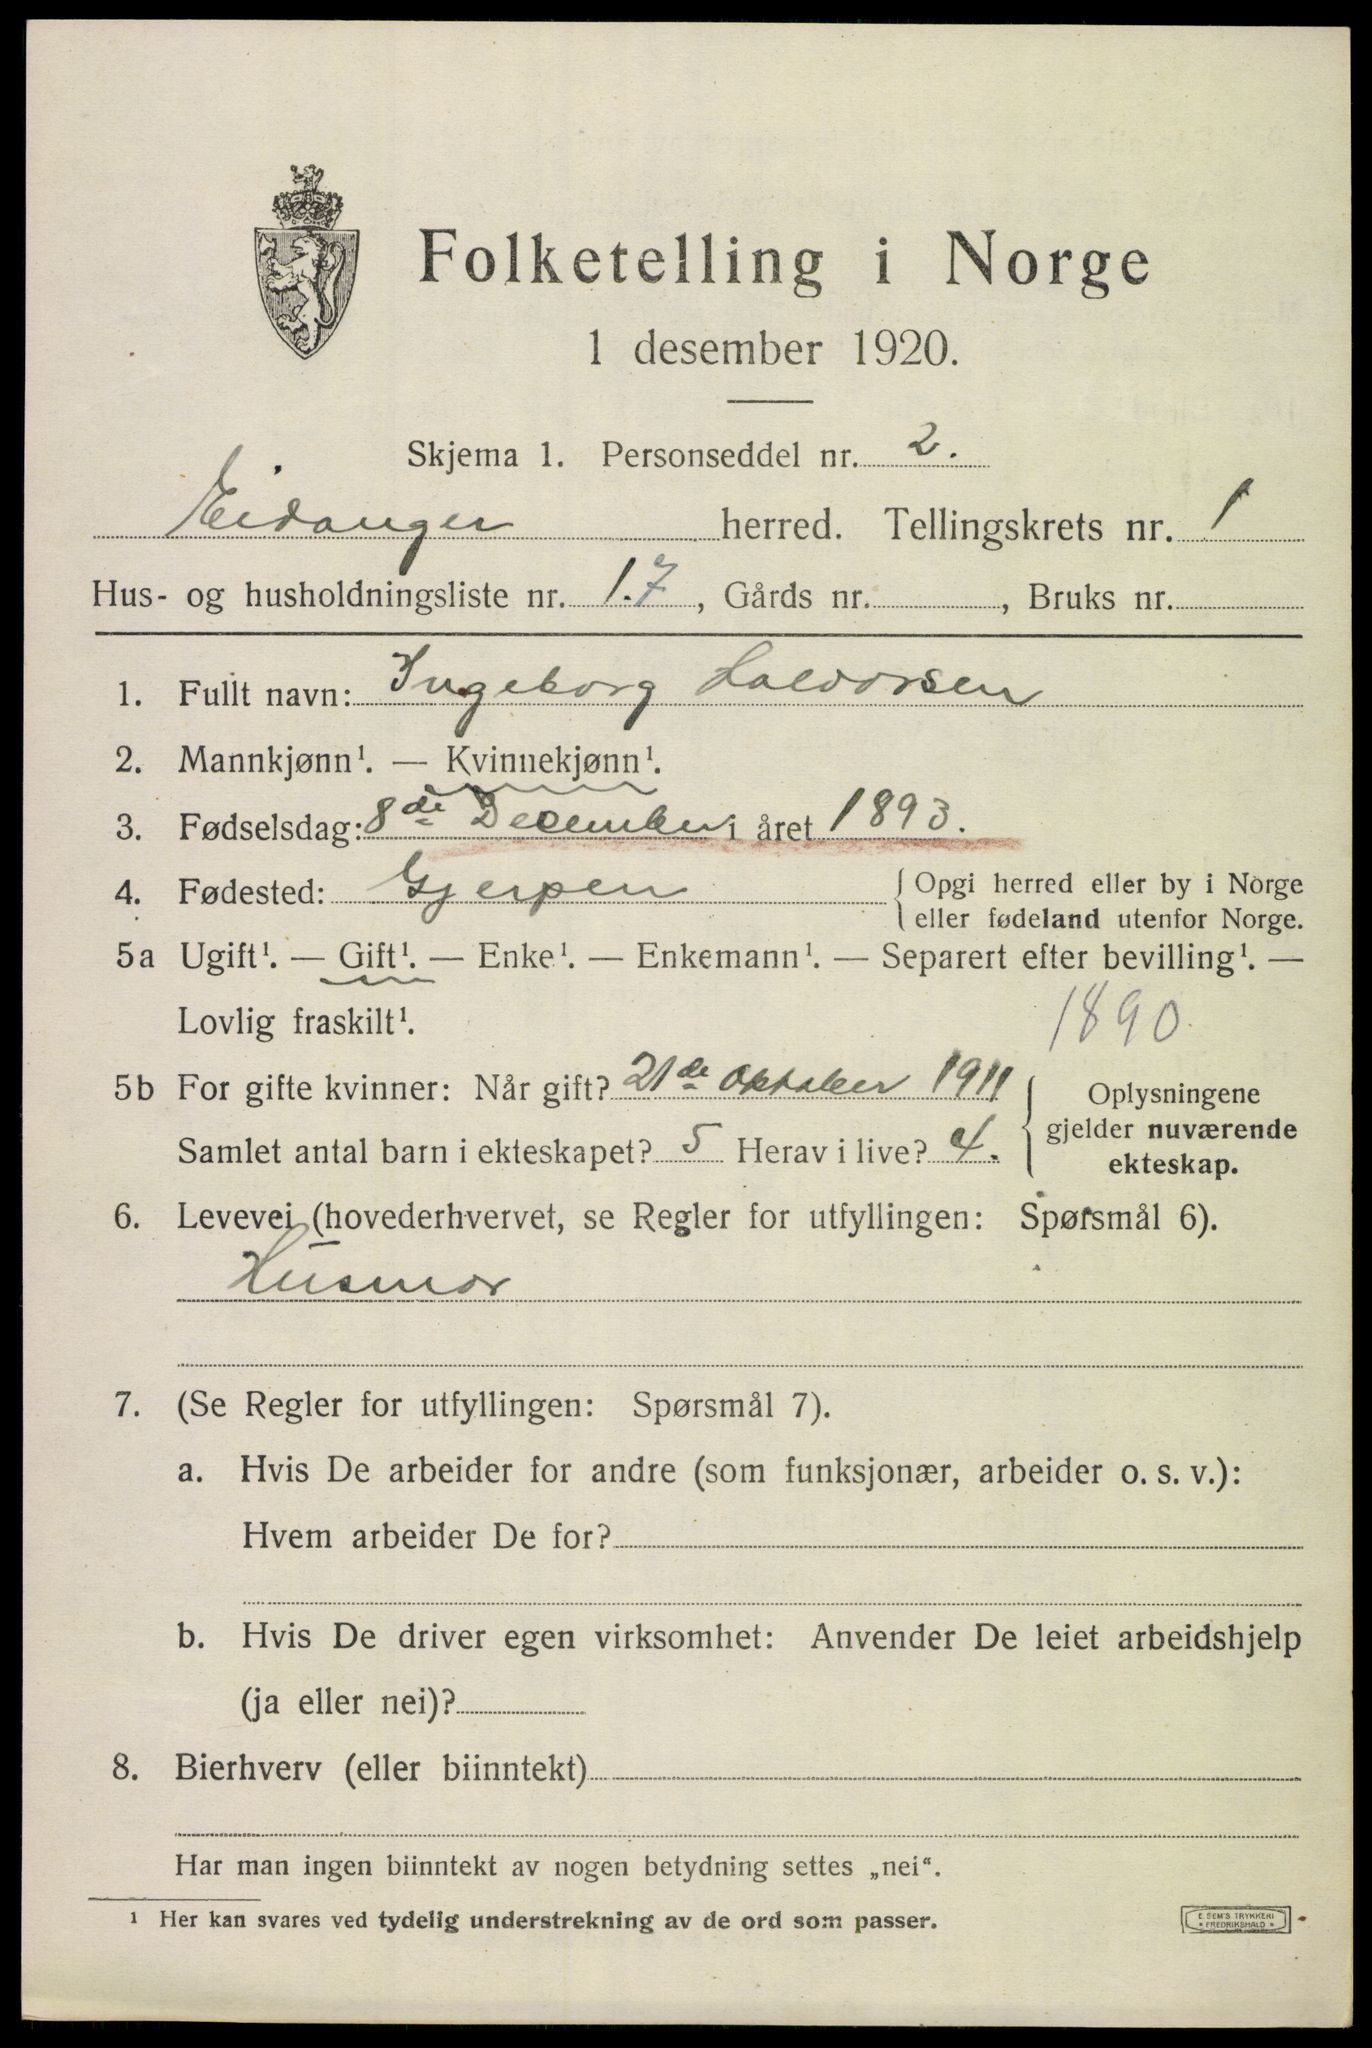 Folketelling i Norge
1 desember 1920.
Skjema 1. Personseddel nr. 2.
Eidanger herred. Tellingskrets nr. 1
Hus- og husholdningsliste nr. 1.7, Gårds nr. , Bruks nr.
1. Fullt navn: Ingeborg Halvorsen
2. Mannkjønn¹. — Kvinnekjønn¹.
3. Fødselsdag: 8de December i året 1893.
4. Fødested: Gjerpen { Opgi herred eller by i Norge
eller fødeland utenfor Norge.
5a Ugift¹. — Gift¹. — Enke¹. — Enkemann¹. — Separert efter bevilling¹. —
Lovlig fraskilt¹. 1890
5b For gifte kvinner: Når gift? 21de Oktober 1911
Samlet antal barn i ekteskapet? 5 Herav i live? 4.
Oplysningene
gjelder nuværende
ekteskap.
6. Levevei (hovederhvervet, se Regler for utfyllingen: Spørsmål 6).
Husmor
7. (Se Regler for utfyllingen: Spørsmål 7).
a. Hvis De arbeider for andre (som funksjonær, arbeider o. s. v.):
Hvem arbeider De for?
b. Hvis De driver egen virksomhet: Anvender De leiet arbeidshjelp
(ja eller nei)?
8. Bierhverv (eller biinntekt)
Har man ingen biinntekt av nogen betydning settes „nei“.
¹ Her kan svares ved tydelig understrekning av de ord som passer.
E. SEM'S TRYKKERI
* FREDRIKSHALD *